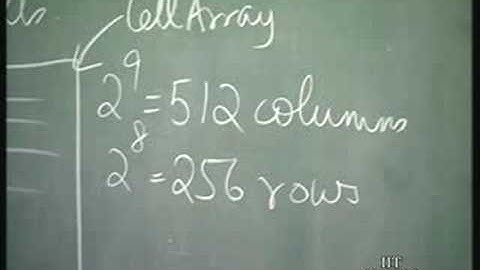 Cell Array
2^9 = 512 columns
2^8 = 256 rows
IIT